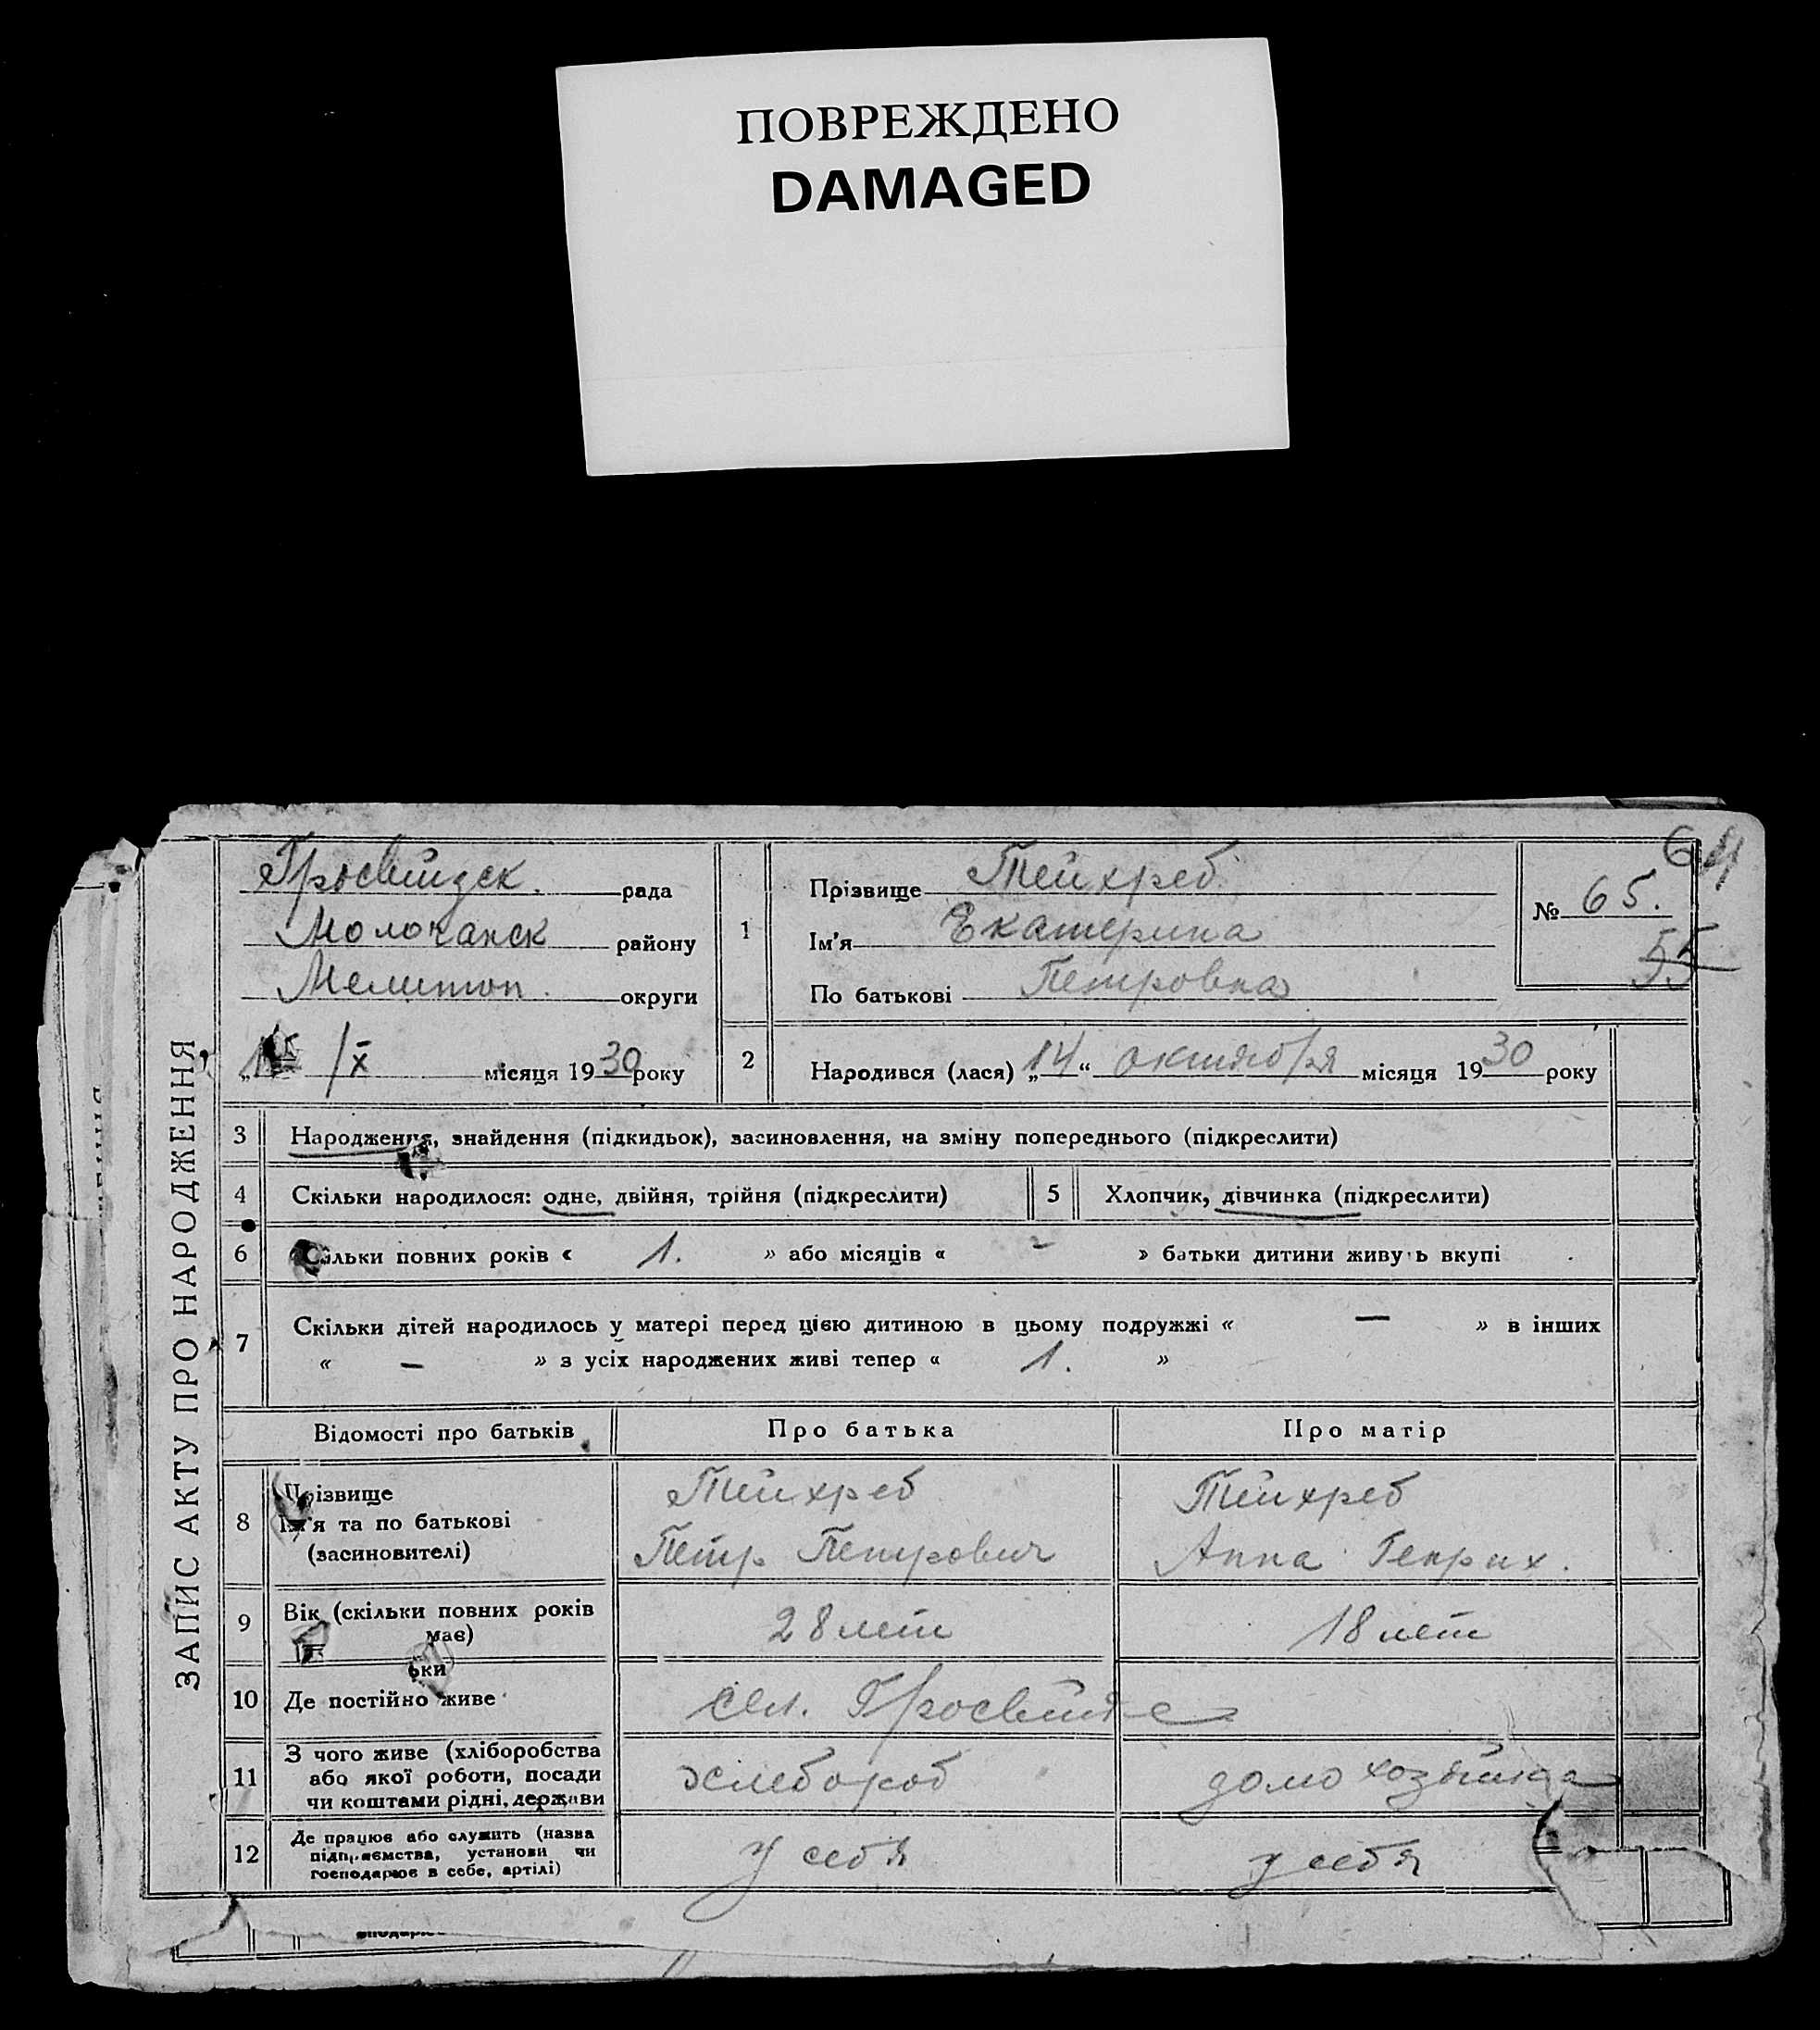 ПОВРЕЖДЕНО
DAMAGED
64
ЗАПИС АКТУ ПРО НАРОДЖЕННЯ
Гросвейдск. рада
Молочанск району
Мелитоп. округи
/X місяця 1930 року
1
Прізвище Тейхреб
Ім'я Екатерина
По батькові Петровна
№ 65.
55
2 Народився (лася) „14“ октября місяця 1930 року
3 Народження, знайдення (підкидьок), засиновлення, на зміну попереднього (підкреслити)
4 Скільки народилося: одне, двійня, трійня (підкреслити)
5 Хлопчик, дівчинка (підкреслити)
6 Скільки повних років « 1. » або місяців « - » батьки дитини живуть вкупі
7 Скільки дітей народилось у матері перед цією дитиною в цьому подружжі « — » в інших
« — » з усіх народжених живі тепер « 1. »
Відомості про батьків Про батька Про матір
8 Прізвище Тейхреб Тейхреб
Ім'я та по батькові Петр Петрович Анна Генрих.
(засиновителі)
9 Вік (скільки повних років 28 лет 18 лет
має)
ьки
10 Де постійно живе сел. Гросвейде
11 З чого живе (хліборобства хлебороб домохозяйка
або якої роботи, посади
чи коштами рідні, держави
12 Де працює або служить (назва у себя у себя
підприємства, установи чи
господарює в себе, артілі)